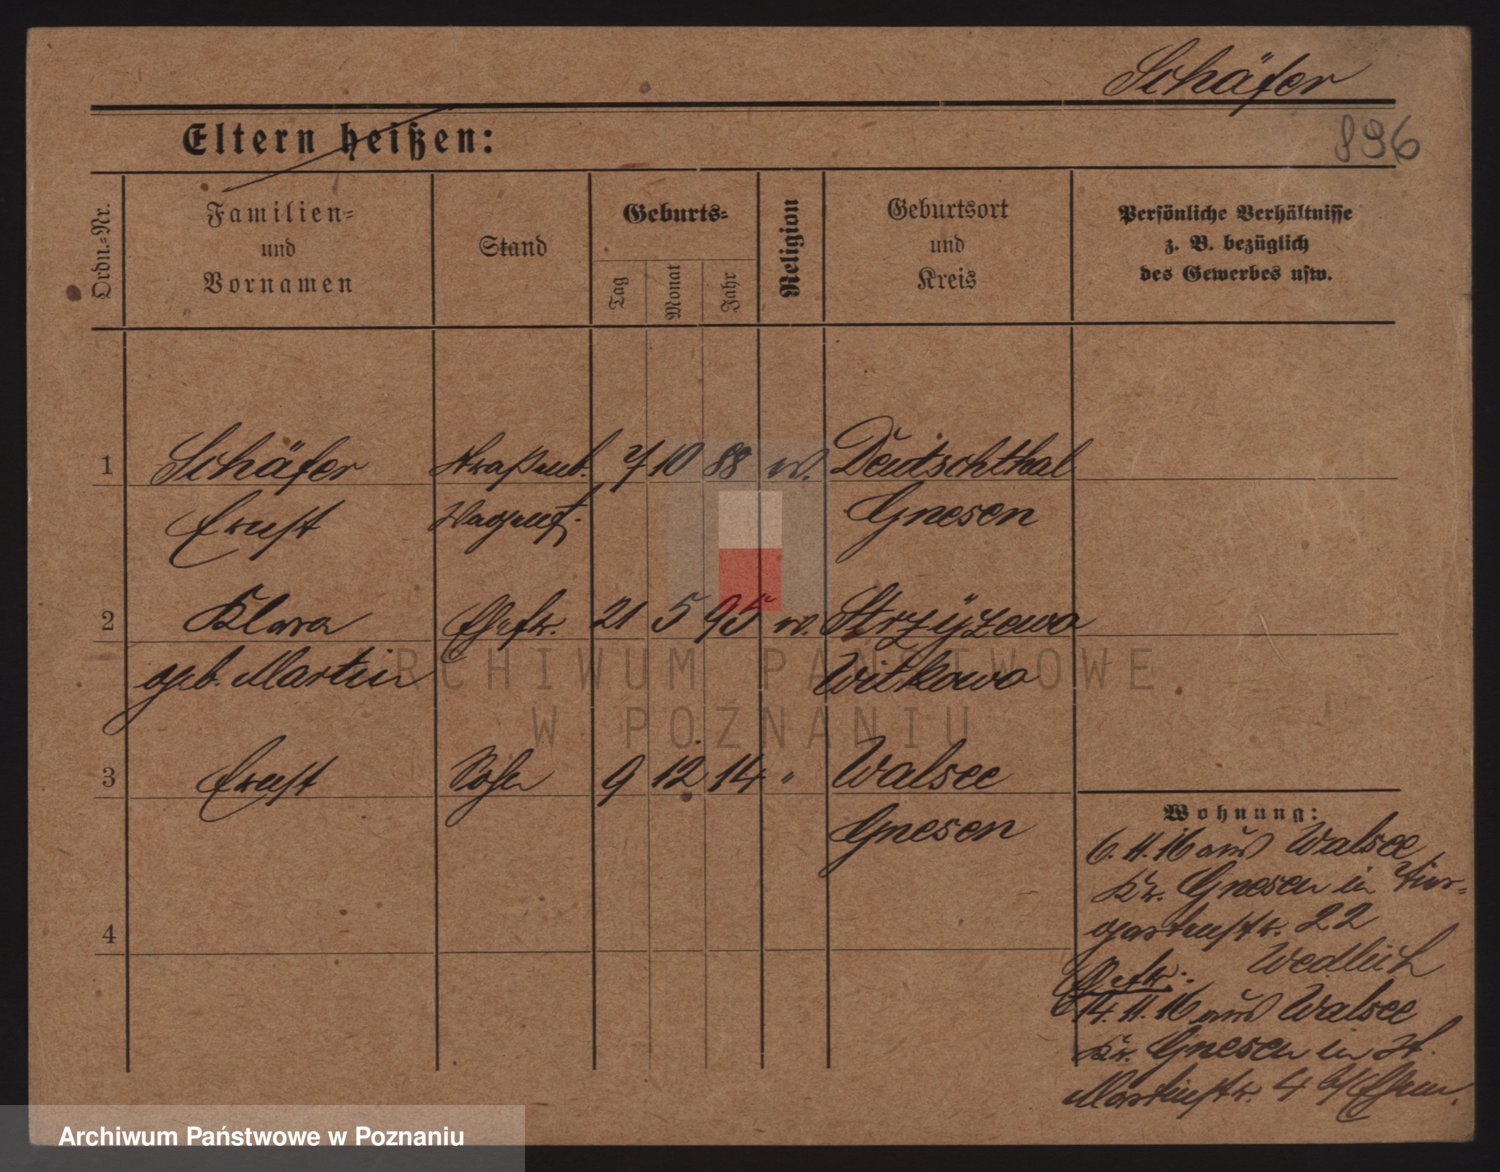 Schäfer
896
Eltern heißen:
Ordn.=Nr.
Familien=
und
Vornamen
Stand
Geburts=
Tag
Monat
Jahr
Religion
Geburtsort
und
Kreis
Persönliche Verhältnisse
z. B. bezüglich
des Gewerbes usw.
1 Schäfer Straßenb. 7 10 88 ev. Deutschthal
Ernst Wagenf. Gnesen
2 Klara Ehefr. 21 5 95 ev. Strzyżewo
geb. Martin Witkowo
3 Ernst Sohn 9 12 14 " Walsee
Gnesen
4
Wohnung:
6.11.16 aus Walsee
Kr. Gnesen in Tier=
gartenstr. 22
Wedlich
Ehefr.:
14.11.16 aus Walsee
Kr. Gnesen in St.
Martinstr. 4 b/Ehem.
ARCHIWUM PAŃSTWOWE
W POZNANIU
Archiwum Państwowe w Poznaniu